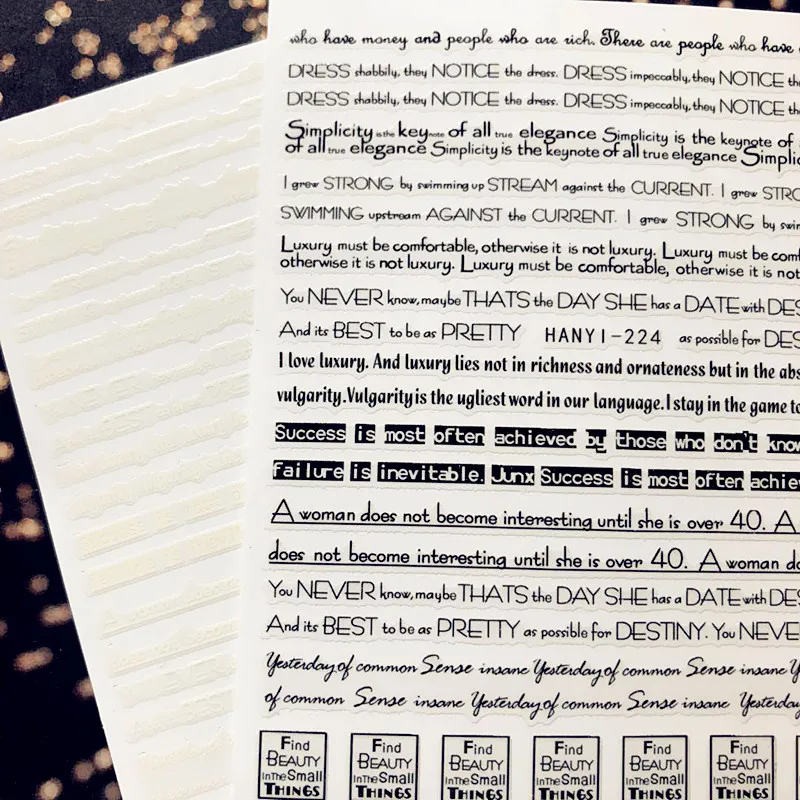 who have money and people who are rich. There are people who have
DRESS shabbily, they NOTICE the dress. DRESS impeccably, they NOTICE the
DRESS shabbily, they NOTICE the dress. DRESS impeccably, they NOTICE the
Simplicity is the keynote of all true elegance Simplicity is the keynote of
of all true elegance Simplicity is the keynote of all true elegance Simplic
I grew STRONG by swimming up STREAM against the CURRENT. I grew STRO
SWIMMING upstream AGAINST the CURRENT. I grew STRONG by swim
Luxury must be comfortable, otherwise it is not luxury. Luxury must be comf
otherwise it is not luxury. Luxury must be comfortable, otherwise it is not
You NEVER know, maybe THATS the DAY SHE has a DATE with DES
And its BEST to be as PRETTY HANYI-224 as possible for DES
I love luxury. And luxury lies not in richness and ornateness but in the abs
vulgarity. Vulgarity is the ugliest word in our language. I stay in the game to
Success is most often achieved by those who don't know
failure is inevitable. Junx Success is most often achiev
A woman does not become interesting until she is over 40. A
does not become interesting until she is over 40. A woman do
You NEVER know, maybe THATS the DAY SHE has a DATE with DES
And its BEST to be as PRETTY as possible for DESTINY. You NEVE
Yesterday of common Sense insane Yesterday of common Sense insane Y
of common Sense insane Yesterday of common Sense insane Yesterday
Find Find Find Find Find Find
BEAUTY BEAUTY BEAUTY BEAUTY BEAUTY BEAUTY
In The Small In The Small In The Small In The Small In The Small In The Small
THINGS THINGS THINGS THINGS THINGS THINGS